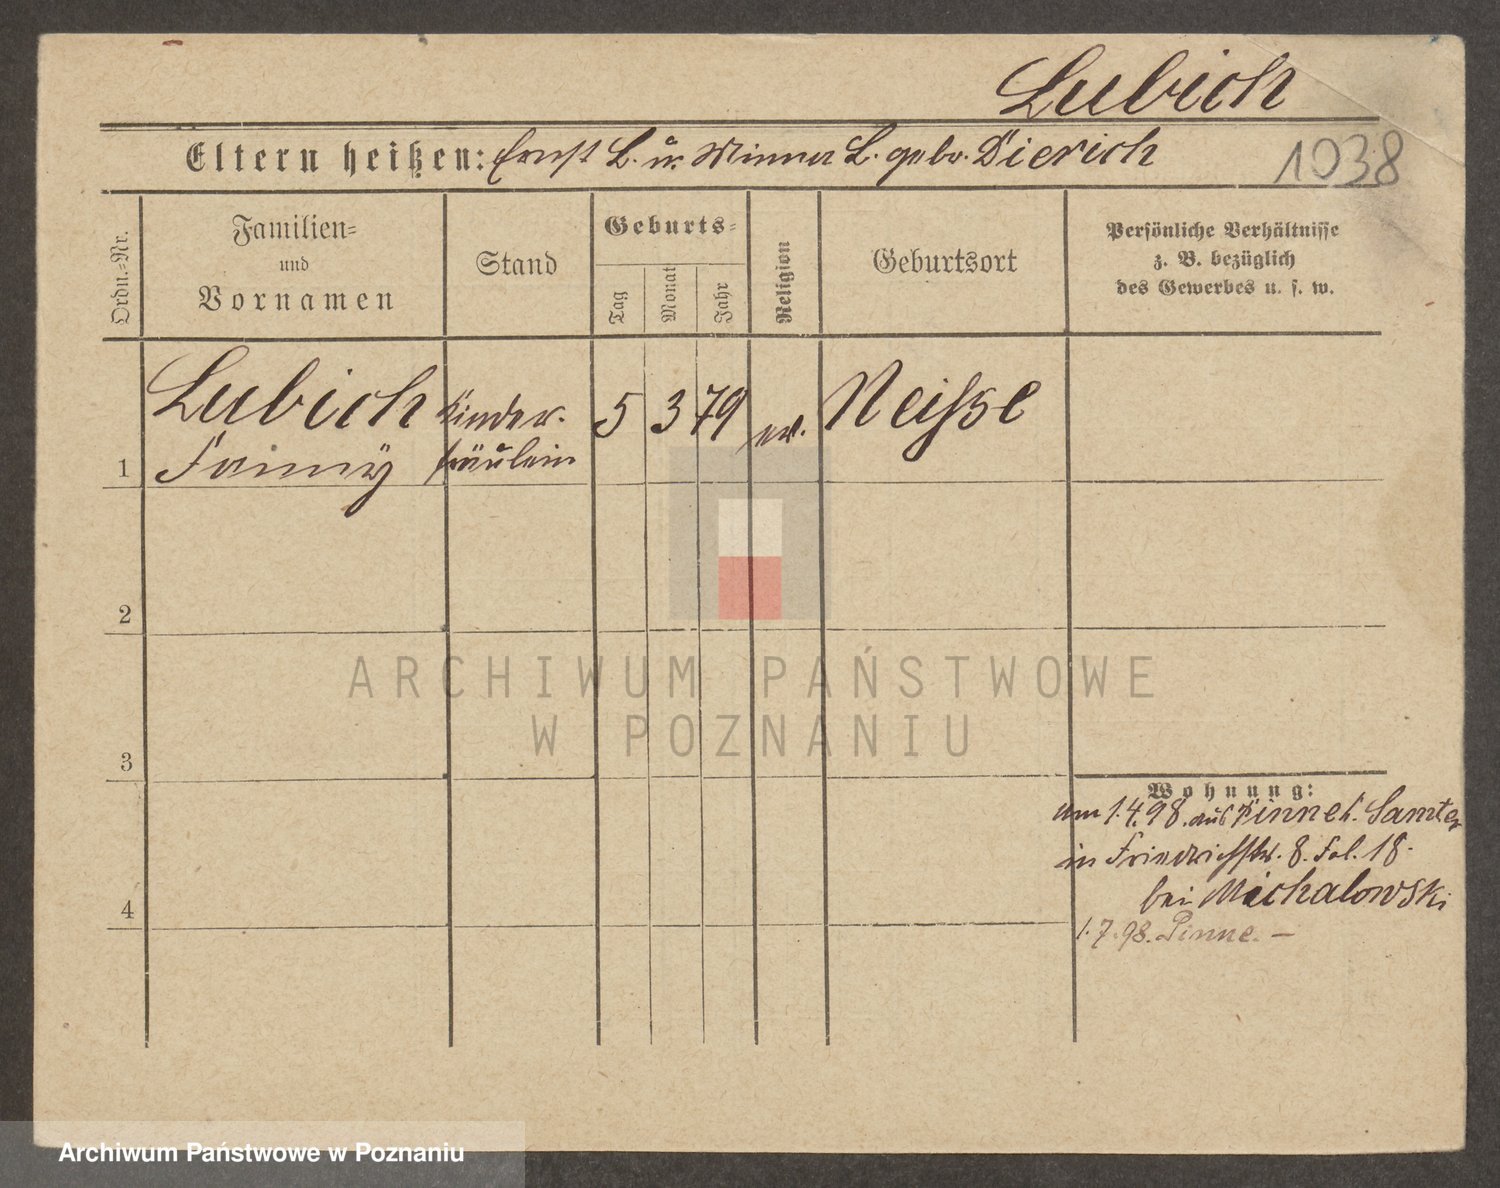 Lubich
Eltern heißen: Ernst L. u. Minna L. gebr. Dierich
1038
Ordn.-Nr.
Familien-
und
Vornamen
Stand
Geburts-
Tag
Monat
Jahr
Religion
Geburtsort
Persönliche Verhältnisse
z. B. bezüglich
des Gewerbes u. s. w.
1
Lubich
Fanny
Kinder-
fräulein
5 3 79
ev.
Neisse
2
3
4
ARCHIWUM PAŃSTWOWE
W POZNANIU
Wohnung:
am 1.4.98. aus Pinne k. Samter
in Friedrichstr. 8. Fol. 18.
bei Michalowski
1.7.98. Pinne. —
Archiwum Państwowe w Poznaniu